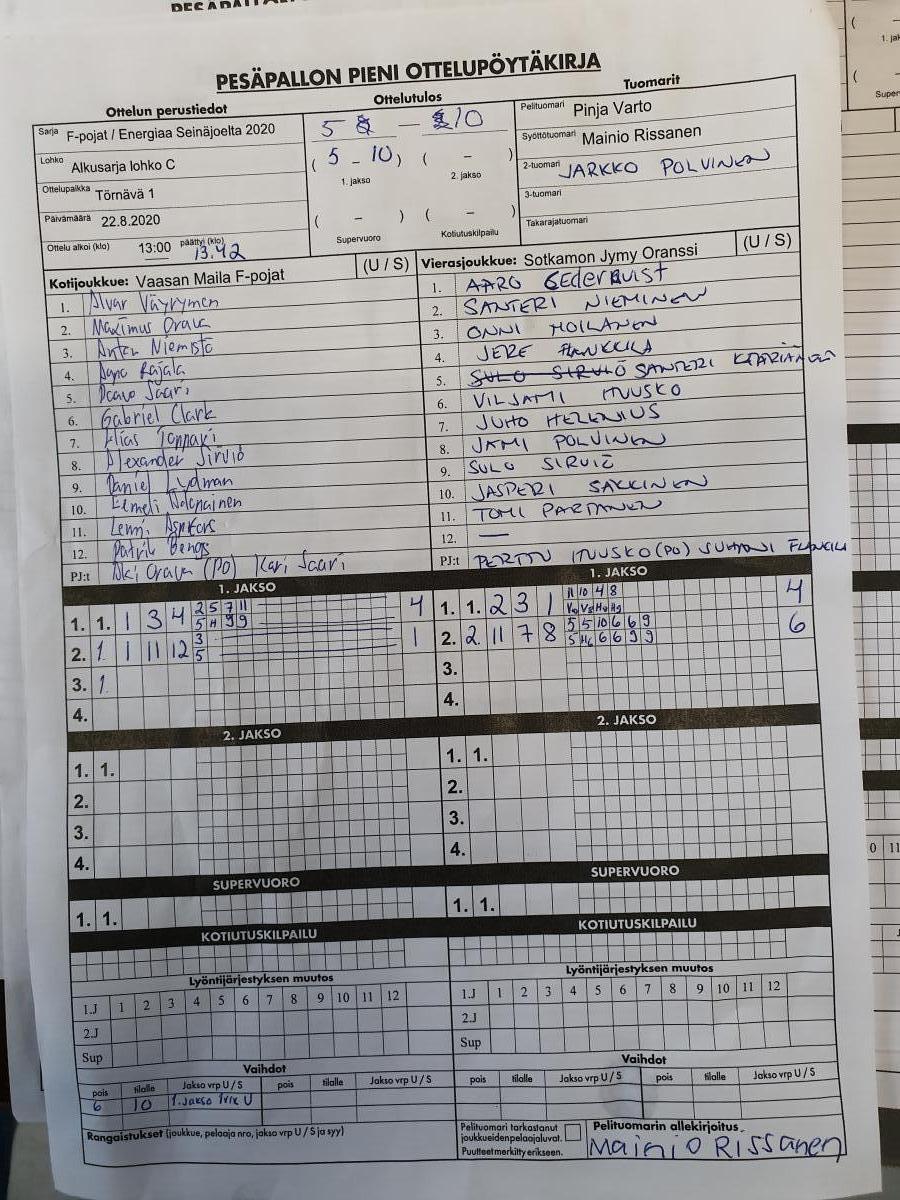 PESÄPALLON PIENI OTTELUPÖYTÄKIRJA
Ottelun perustiedot
Ottelutulos
Tuomarit
Sarja F-pojat / Energiaa Seinäjoelta 2020
Lohko Alkusarja lohko C
Ottelupaikka Törnävä 1
Päivämäärä 22.8.2020
Ottelu alkoi (klo) 13:00 päättyi (klo) 13.42
5 — 10
( 5 - 10 ) ( - )
1. jakso 2. jakso
( - ) ( - )
Supervuoro Kotiutuskilpailu
Pelituomari Pinja Varto
Syöttötuomari Mainio Rissanen
2-tuomari JARKKO POLVINEN
3-tuomari
Takarajatuomari
Kotijoukkue: Vaasan Maila F-pojat (U / S)
1. Alvar Väyrynen
2. Maximus Orava
3. Anton Niemistö
4. Rajala
5. Saari
6. Gabriel Clark
7. Elias
8. Alexander Sirviö
9. Daniel Lydman
10. Eemeli
11. Lenni
12. Patrik Bengs
PJ:t Aki Orava (PO) Kari Saari
Vierasjoukkue: Sotkamon Jymy Oranssi (U / S)
1. AARO CEDERQVIST
2. SANTERI NIEMINEN
3. ONNI MOILANEN
4. JERE FLANKKILA
5. SULO SIRVIÖ SANTERI KÄÄRIÄINEN
6. VILJAMI ITUUSKO
7. JUHO HELENIUS
8. JAMI POLVINEN
9. SULO SIRVIÖ
10. JASPERI SAKKINEN
11. TOMI PARTANEN
12. —
PJ:t PERTTU (PO)
1. JAKSO
1. 1. 1 3 4 2 5 7 11 4
5 11 9 9
2. 1 1 11 12 3 1
5
3. 1
4.
1. JAKSO
1. 1. 2 3 1 11 10 4 8 4
2. 2 11 7 8 5 5 10 6 6 9 6
3.
4.
2. JAKSO
1. 1.
2.
3.
4.
2. JAKSO
1. 1.
2.
3.
4.
SUPERVUORO
1. 1.
SUPERVUORO
1. 1.
KOTIUTUSKILPAILU
KOTIUTUSKILPAILU
Lyöntijärjestyksen muutos
1.J 1 2 3 4 5 6 7 8 9 10 11 12
2.J
Sup
Lyöntijärjestyksen muutos
1.J 1 2 3 4 5 6 7 8 9 10 11 12
2.J
Sup
Vaihdot
pois tilalle Jakso vrp U / S pois tilalle Jakso vrp U / S
6 10 1.Jakso 1vrp U
Vaihdot
pois tilalle Jakso vrp U / S pois tilalle Jakso vrp U / S
Rangaistukset (joukkue, pelaaja nro, jakso vrp U / S ja syy)
Pelituomari tarkastanut
joukkueidenpelaajaluvat.
Puutteet merkitty erikseen.
Pelituomarin allekirjoitus
Mainio Rissanen